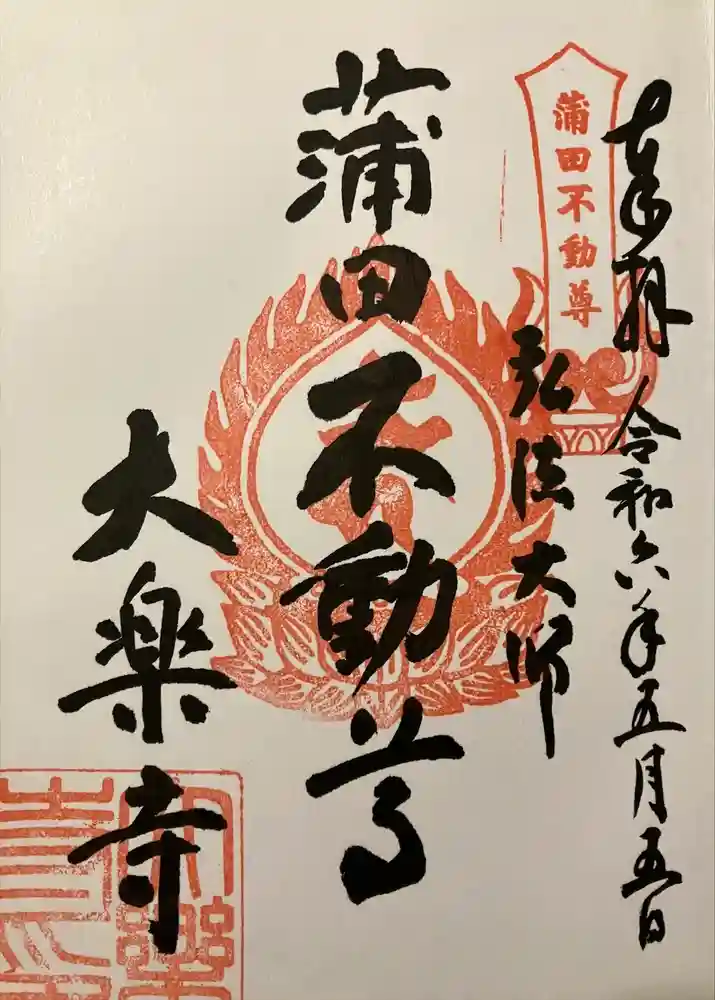 奉拝 令和六年五月五日
蒲田不動尊
弘法大師
蒲田不動尊
大楽寺